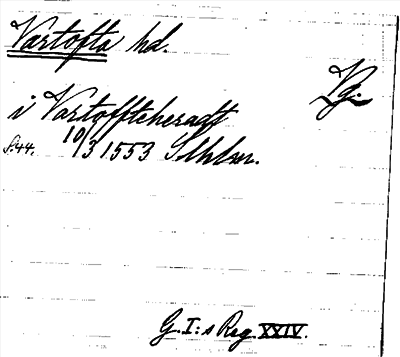 Vartofta hd.
Vg.
i Vartofftcheradt
s. 44. 10/3 1553 Sthlm.
G. I:s Reg. XXIV.